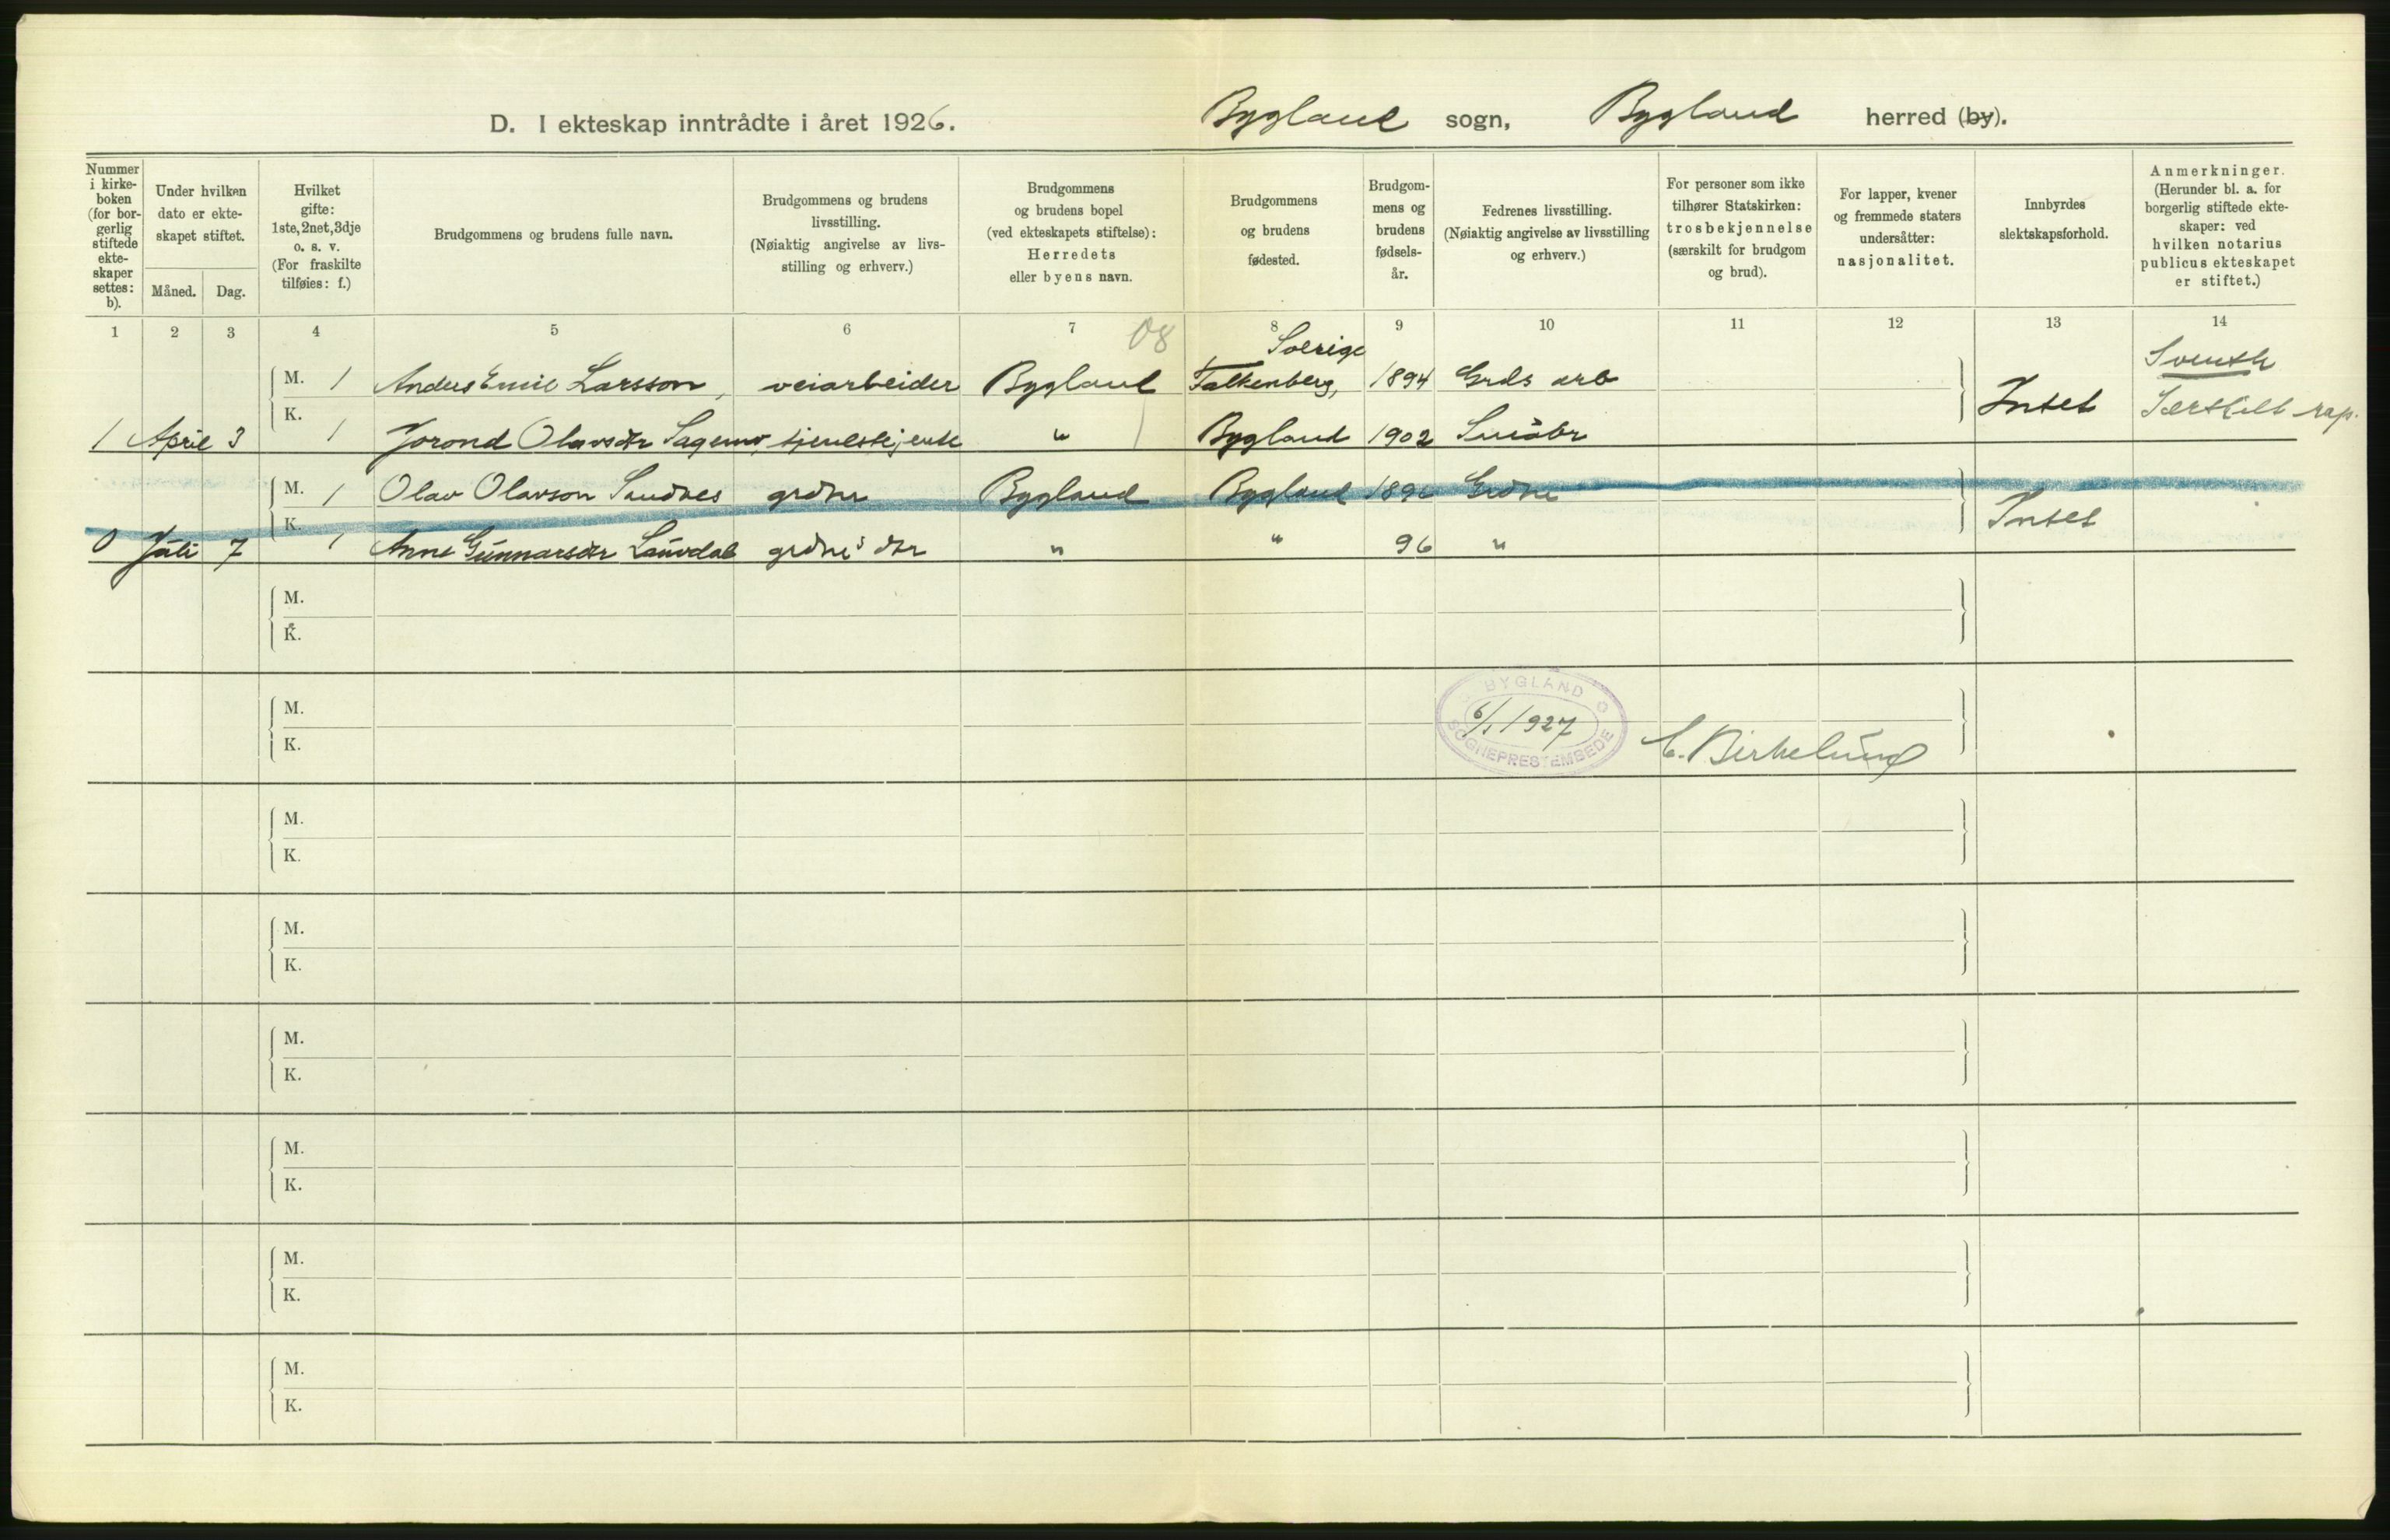 D. I ekteskap inntrådte i året 1926. Bygland sogn, Bygland herred (by).
Nummer i kirke-boken (for bor-gerlig stiftede ekte-skaper settes: b).
Under hvilken dato er ekte-skapet stiftet.
Måned. Dag.
Hvilket gifte: 1ste, 2net, 3dje o. s. v. (For fraskilte tilføies: f.)
Brudgommens og brudens fulle navn.
Brudgommens og brudens livsstilling. (Nøiaktig angivelse av livs-stilling og erhverv.)
Brudgommens og brudens bopel (ved ekteskapets stiftelse): Herredets eller byens navn.
Brudgommens og brudens fødested.
Brudgom-mens og brudens fødsels-år.
Fedrenes livsstilling. (Nøiaktig angivelse av livsstilling og erhverv.)
For personer som ikke tilhører Statskirken: trosbekjennelse (særskilt for brudgom og brud).
For lapper, kvener og fremmede staters undersåtter: nasjonalitet.
Innbyrdes slektskapsforhold.
Anmerkninger. (Herunder bl. a. for borgerlig stiftede ekte-skaper: ved hvilken notarius publicus ekteskapet er stiftet.)
1 2 3 4 5 6 7 8 9 10 11 12 13 14
08
Sverige
Svensk
M. 1 Anders Emil Larsson, veiarbeider Bygland Falkenberg, 1894 Grds arb
Intet Særskilt rap.
1 April 3 K. 1 Jorond Olavsdtr tjenestejente " Bygland 1902 Småbr
M. 1 Olav Olavson Sandnes grdbr Bygland Bygland
Intet
0 Juli 7 K. 1 Anne Gunnarsdtr Lauvdal " " 96 "
M.
K.
M.
K.
BYGLAND
6/1 1927
SOGNEPRESTEMBEDE
C. Birkelund
M.
K.
M.
K.
M.
K.
M.
K.
M.
K.
M.
K.